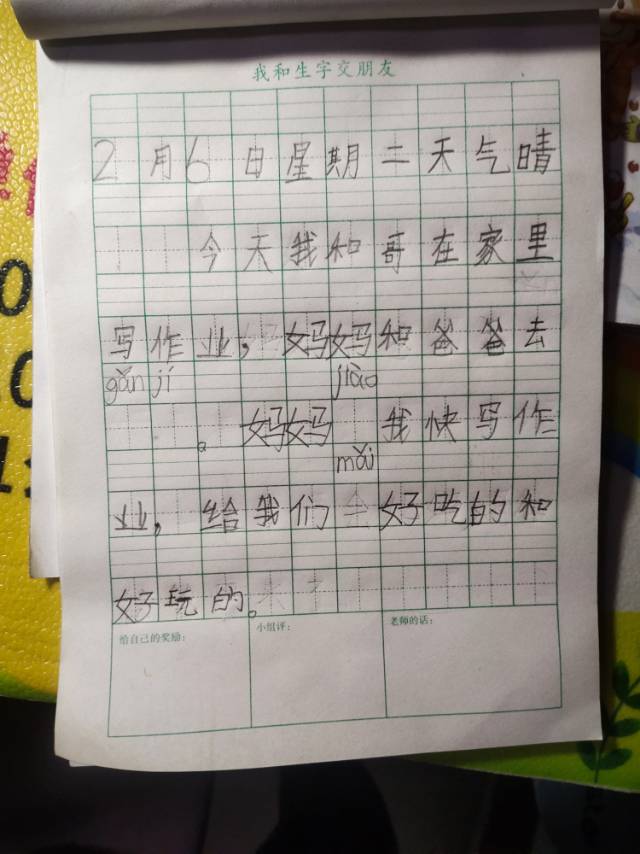 我和生字交朋友
2月6日星期二天气晴
今天我和哥在家里
写作业，妈妈和爸爸去
gǎn jí jiào
。妈妈 我快写作
mǎi
业，给我们 好吃的和
好玩的。
给自己的奖励： 小组评： 老师的话：